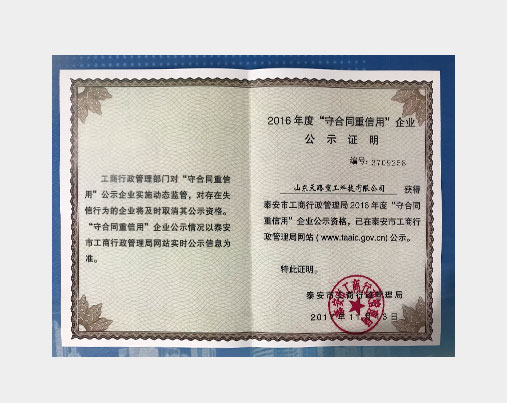 工商行政管理部门对“守合同重信
用”公示企业实施动态监管，对存在失
信行为的企业将及时取消其公示资格。
“守合同重信用”企业公示情况以泰安
市工商行政管理局网站实时公示信息为
准。
2016 年度“守合同重信用”企业
公示证明
编号: 3709258
山东天路重工科技有限公司 获得
泰安市工商行政管理局 2016 年度“守合同
重信用”企业公示资格，已在泰安市工商行
政管理局网站 ( www.taaic.gov.cn) 公示。
特此证明。
泰安市工商行政管理局